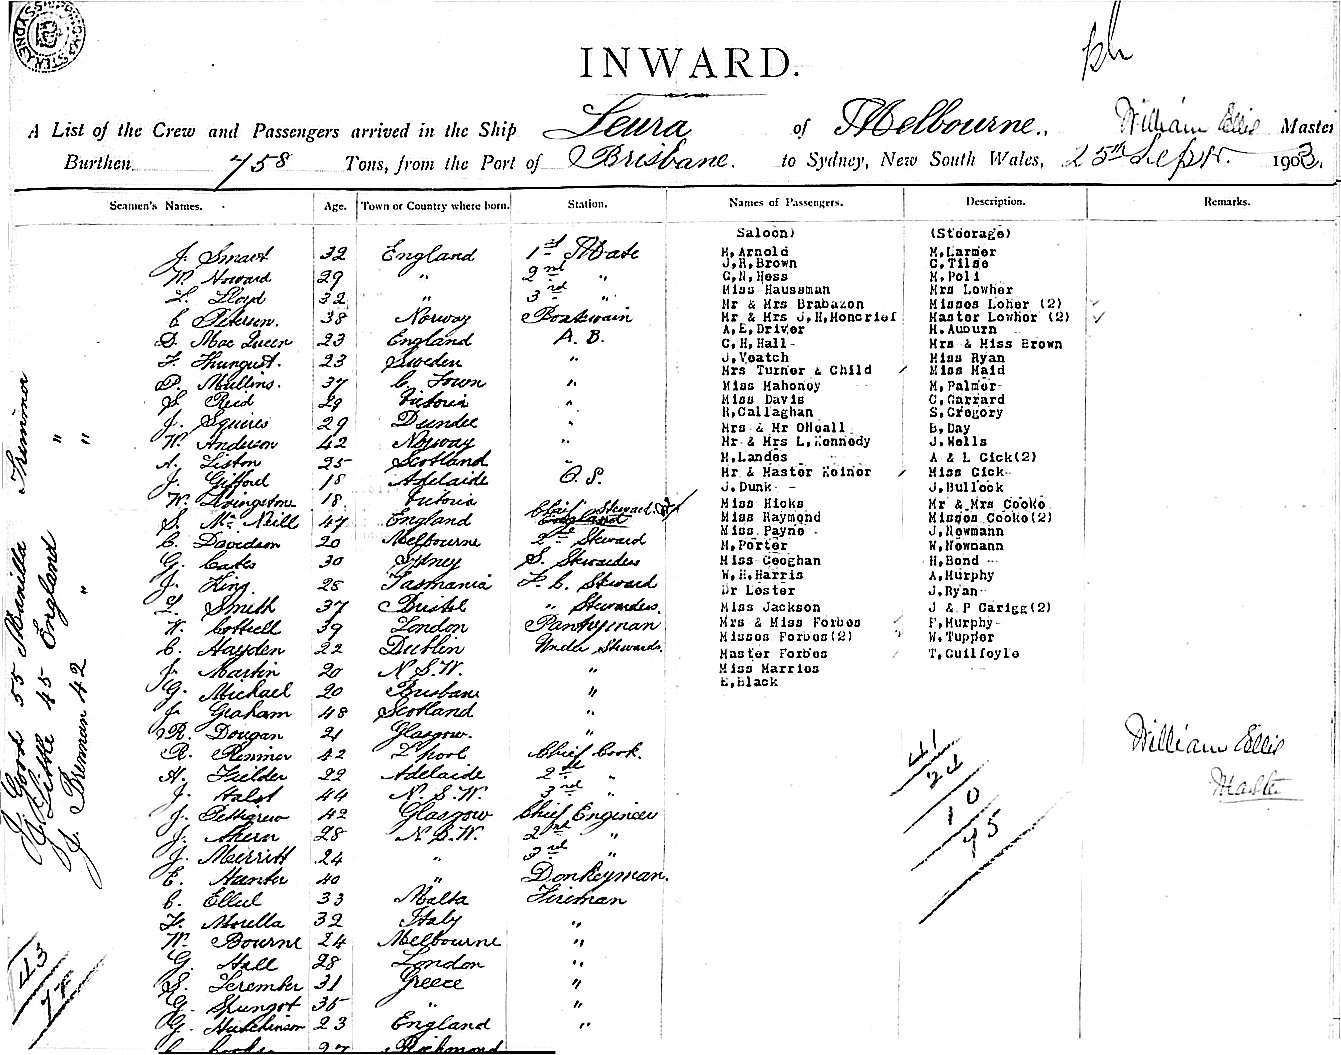 INWARD.
A List of the Crew and Passengers arrived in the Ship Leura of Melbourne., William Ellis Master
Burthen 758 Tons, from the Port of Brisbane. to Sydney, New South Wales, 25th Septr. 1903.
Seamen's Names. Age. Town or Country where born. Station. Names of Passengers. Description. Remarks.
J. Smart 32 England 1st Mate
W. Howard 29 " 2nd "
L. Lloyd 32 " 3rd "
C. Petersen. 38 Norway Boatswain
D. Mac Queen 23 England A. B.
F. 23 Sweden "
P. Mullins. 37 C. Town "
S. Reid 29 Victoria "
J. Squires 29 Dundee "
W. Anderson 42 Norway "
A. Liston 25 Scotland "
J. Gifford 18 Adelaide O. S.
W. Livingstone 18 Victoria
S. Mc Neill 47 England Chief Steward
C. Davidson 20 Melbourne 2nd Steward
G. Cates 30 Sydney S. Stewardess
J. King 28 Tasmania F. C. Steward
L. Smith 37 Bristol " Stewardess
W. Cottrell 39 London Pantryman
C. Hayden 22 Dublin Under Stewards
J. Martin 20 N.S.W. "
G. Michael 20 Brisbane "
J. Graham 48 Scotland "
R. Dougan 21 Glasgow. "
R. 42 L'pool Chief Cook.
A. Fielder 22 Adelaide 2nd "
J. Halst 44 N.S.W. 3rd "
J. Pettigrew 42 Glasgow Chief Engineer
J. Ahern 28 N.S.W. 2nd "
J. Merritt 24 " 3rd "
E. Hunter 40 " Donkeyman.
C. Ellul 33 Malta Fireman
F. Morella 32 Italy "
W. Bourne 24 Melbourne "
G. Hall 28 London "
S. 31 Greece "
G. 35 " "
G. Hutchinson 23 England "
C. Cooke 27 Richmond
Saloon)
M.Arnold
J.R.Brown
C.N.Hess
Miss Haussman
Mr & Mrs Brabazon
Mr & Mrs J.H.Moncrief
A.E.Driver
C.H.Hall
J.Veatch
Mrs Turner & Child
Miss Mahoney
Miss Davis
R.Callaghan
Mrs & Mr ONeall
Mr & Mrs L.Kennedy
M.Landes
Mr & Master Keiner
J.Dunk
Miss Hicks
Miss Raymond
Miss Payne
M.Porter
Miss Geoghan
W.H.Harris
Dr Lester
Miss Jackson
Mrs & Miss Forbes
Misses Forbes(2)
Master Forbes
Miss Harries
E.Black
(Steerage)
M.Larmer
C.Tilse
M.Poli
Mrs Lowher
Misses Loher (2)
Master Lowher (2)
H.Auburn
Mrs & Miss Brown
Miss Ryan
Miss Maid
M.Palmer
C.Garrard
S.Gregory
B.Day
J.Wells
A & L Cick(2)
Miss Cick
J.Bullock
Mr & Mrs Cooke
Misses Cooke(2)
J.Newmann
W.Newmann
H.Bond
A.Murphy
J.Ryan
J & P Carigg(2)
P.Murphy
W.Tupper
T.Guilfoyle
41
24
10
75
William Ellis
Master
J. Goos 55 Manilla Trimmer
J. Little 45 England " "
J. Brennan 42 " "
43